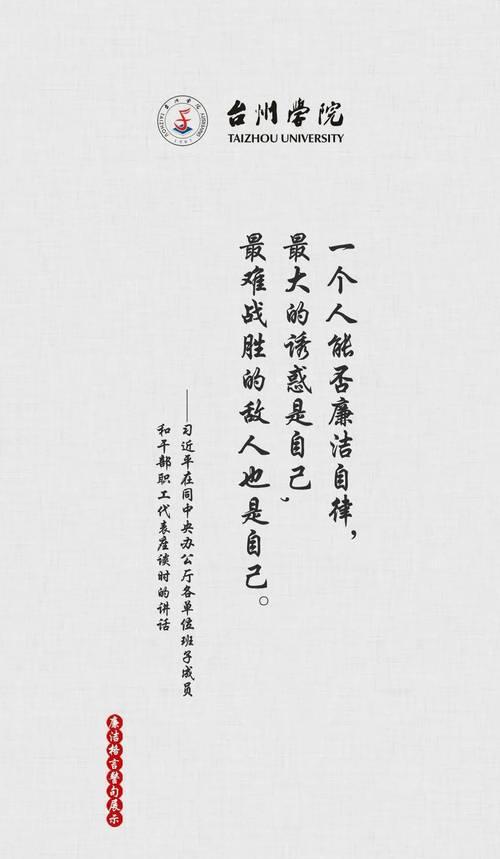 台州学院
TAIZHOU UNIVERSITY
一个人能否廉洁自律，
最大的诱惑是自己，
最难战胜的敌人也是自己。
——习近平在同中央办公厅各单位班子成员
和干部职工代表座谈时的讲话
廉洁格言警句展示